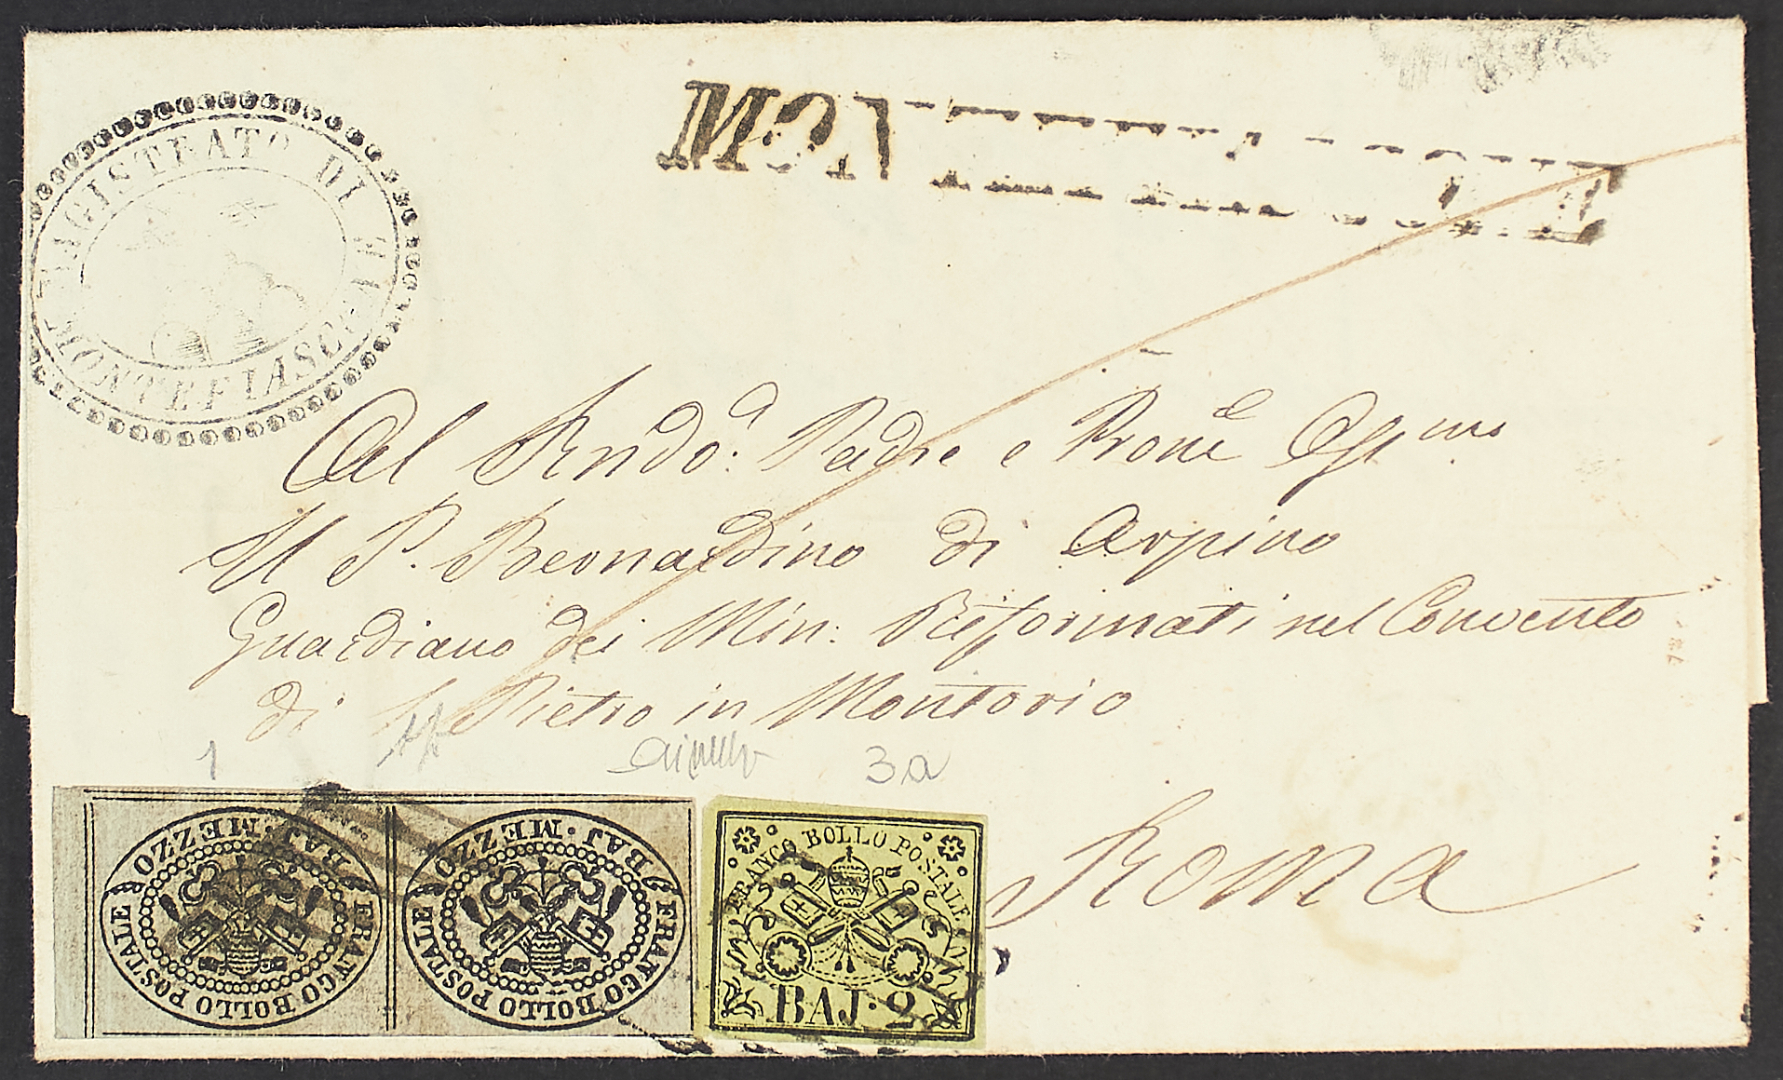 MAGISTRATO DI
MONTEFIASCO
Al Rndo: Padre e Prone
Il P. Bernardino di Arpino
Guardiano dei Min: Riformati nel Convento
di S Pietro in Montorio
1
3a
FRANCO BOLLO POSTALE
BAJ. MEZZO
FRANCO BOLLO POSTALE
BAJ. MEZZO
FRANCO BOLLO POSTALE
BAJ. 2
Roma